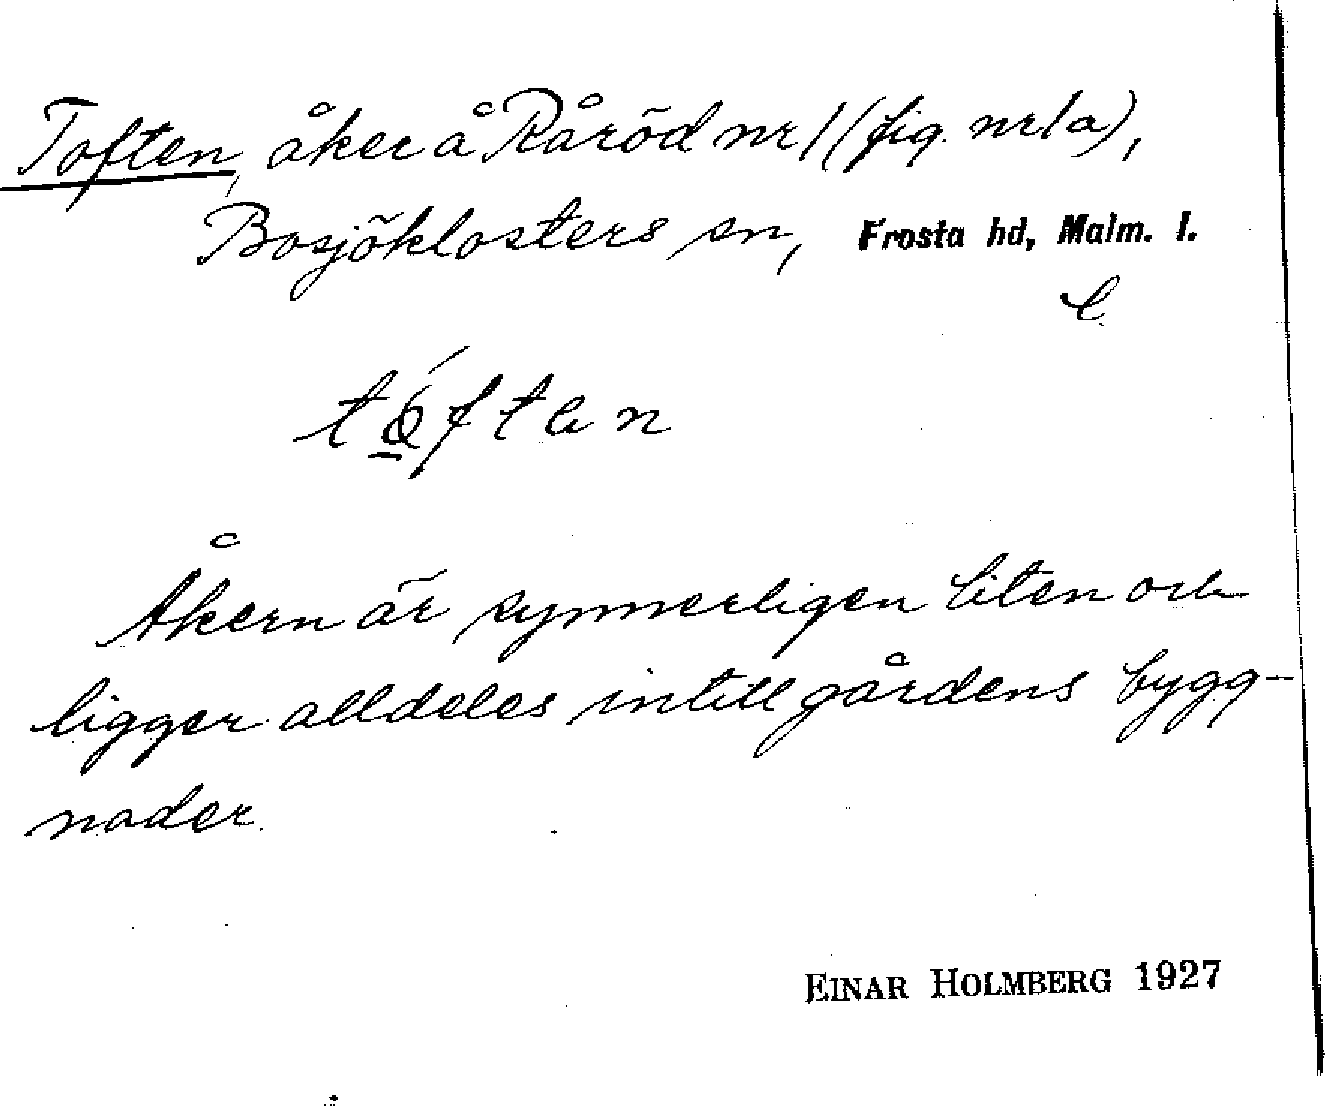 Toften, åker å Råröd nr 1 (fig. nr 1 a),
Bosjöklosters sn, Frosta hd, Malm. l.
l.
tǫ́ften
Åkern är synnerligen liten och
ligger alldeles intill gårdens bygg-
nader.
EINAR HOLMBERG 1927